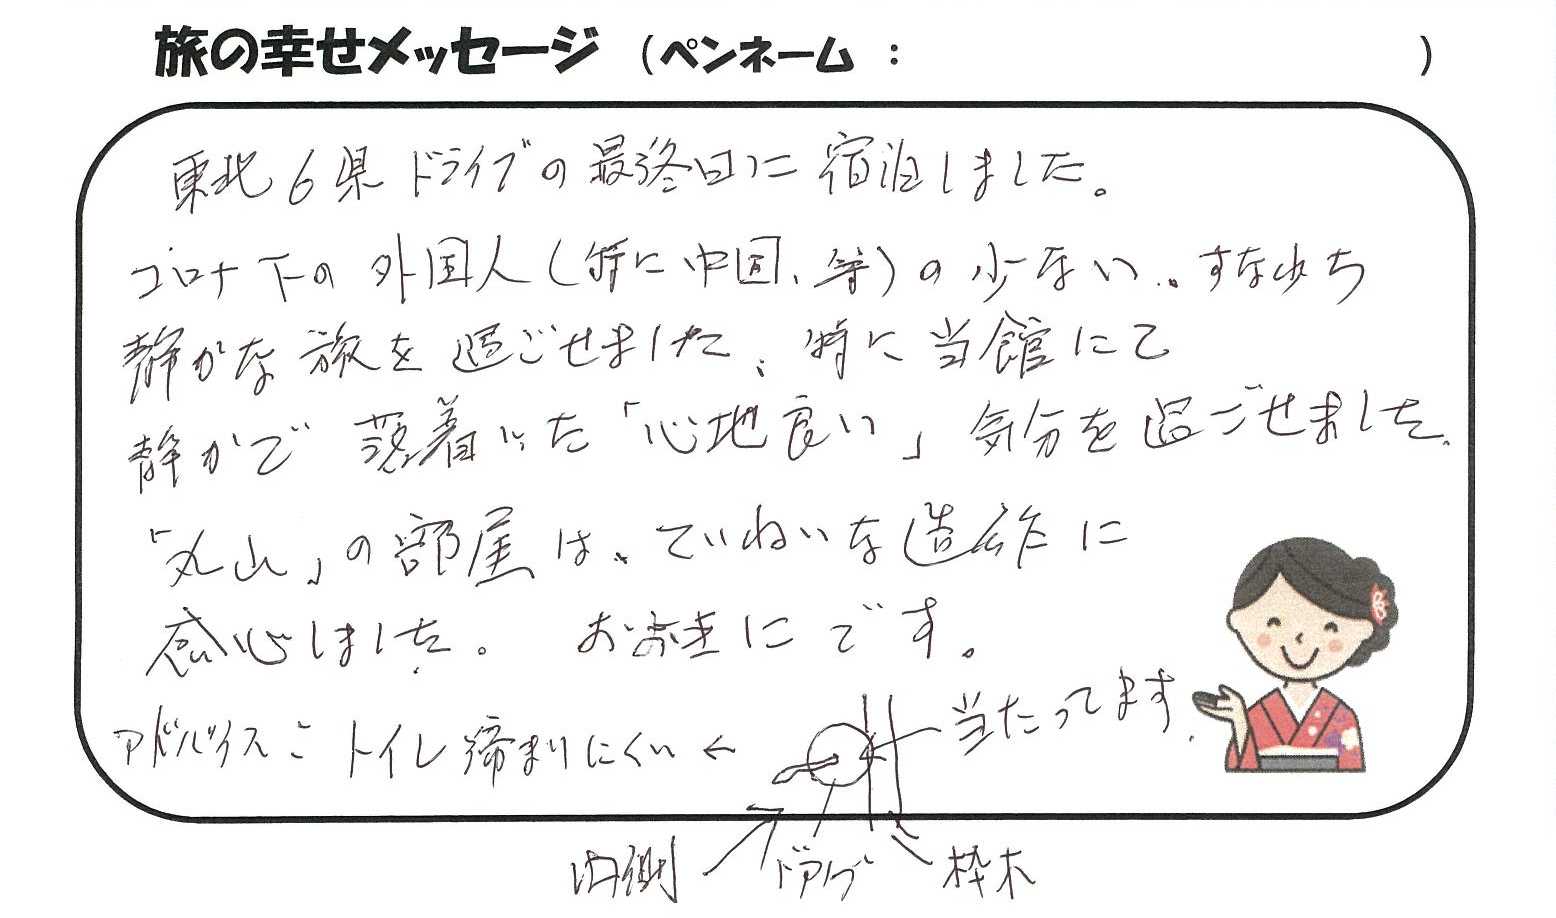 旅の幸せメッセージ （ペンネーム ： ）
東北6県ドライブの最終日に宿泊しました。
コロナ下の外国人（特に中国、等）の少ない、すなわち
静かな旅を過ごせました、特に当館にて
静かで落着いた「心地良い」気分を過ごせました。
「丸山」の部屋は、ていねいな造作に
感心しました。 お済にです。
アドバイス：トイレ締まりにくい ← 当たってます。
内側 ドアノブ 枠木